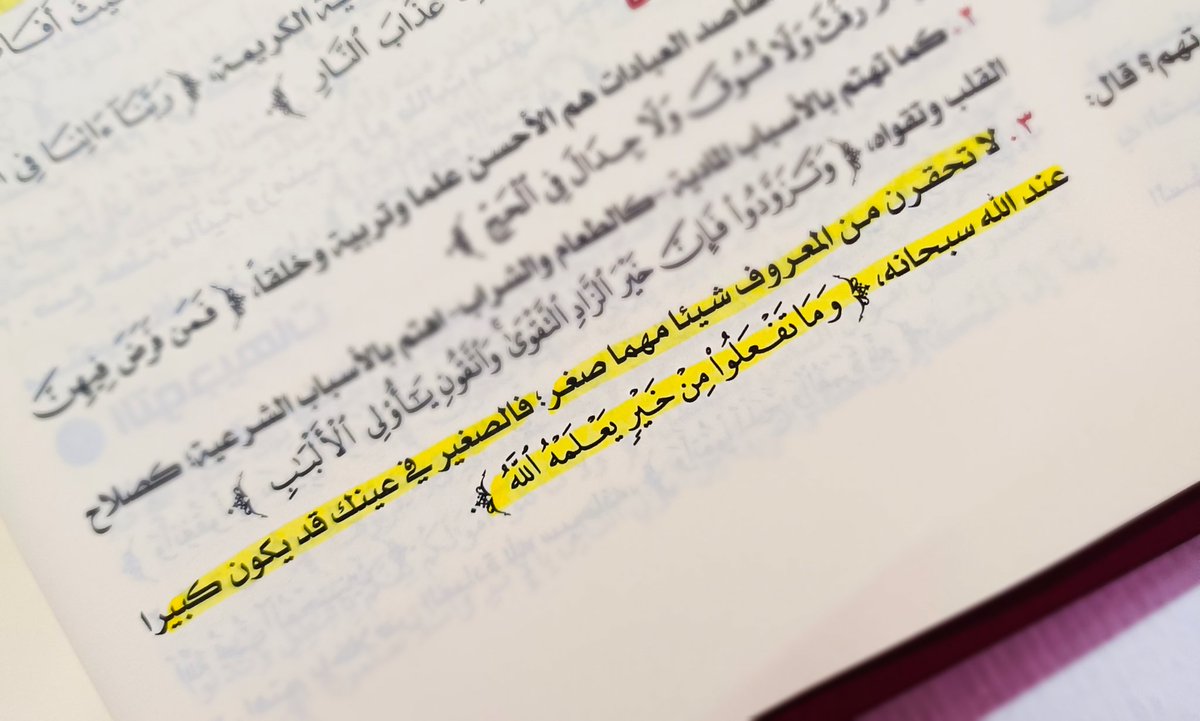 ـية الكريمة، ﴿ رَبَّنَآ ءَاتِنَا فِى
عَذَابَ ٱلنَّارِ ﴾
ـقاصد العبادات هم الأحسن علما وتربية وخلقاً، ﴿ فَمَن فَرَضَ فِيهِنَّ
رَفَثَ وَلَا فُسُوقَ وَلَا جِدَالَ فِي ٱلْحَجِّ ﴾
٢. كما تهتم بالأسباب المادية -كالطعام والشراب- اهتم بالأسباب الشرعية، كصلاح
القلب وتقواه، ﴿ وَتَزَوَّدُوا۟ فَإِنَّ خَيْرَ ٱلزَّادِ ٱلتَّقْوَىٰ وَٱتَّقُونِ يَٰٓأُو۟لِى ٱلْأَلْبَٰبِ ﴾
٣. لا تحقرن من المعروف شيئا مهما صغر؛ فالصغير في عينك قد يكون كبيرا
عند الله سبحانه، ﴿ وَمَا تَفْعَلُوا۟ مِنْ خَيْرٍ يَعْلَمْهُ ٱللَّهُ ﴾
ـتهم؟ قال: